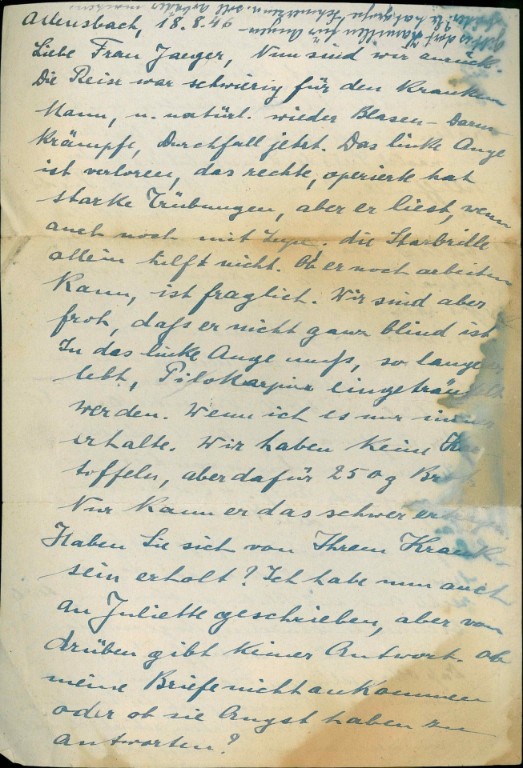 Allensbach, 18.8.46
Liebe Frau Jaeger, Nun sind wir zurück.
Die Reise war schwierig für den Kranken
Mann, u. natürl. wieder Blasen- Darm
Krämpfe, Durchfall jetzt. Das linke Auge
ist verloren, das rechte, operierte hat
starke Trübungen, aber er liest, wenn
auch noch mit Lupe. die Starbrille
allein hilft nicht. Ob er noch arbeiten
kann, ist fraglich. Wir sind aber
froh, daß er nicht ganz blind ist
In das linke Auge muß, so lange er
lebt, Pilokarpin eingeträufelt
werden. Wenn ich es nur immer
erhalte. Wir haben keine
toffeln, aber dafür 250g
Nur kann er das schwer
Haben Sie sich von Ihrem Krank-
sein erholt? Ich habe nun auch
an Juliette geschrieben, aber von
drüben gibt keiner Antwort. ob
meine Briefe nicht ankommen
oder ob sie Angst haben zu
antworten?